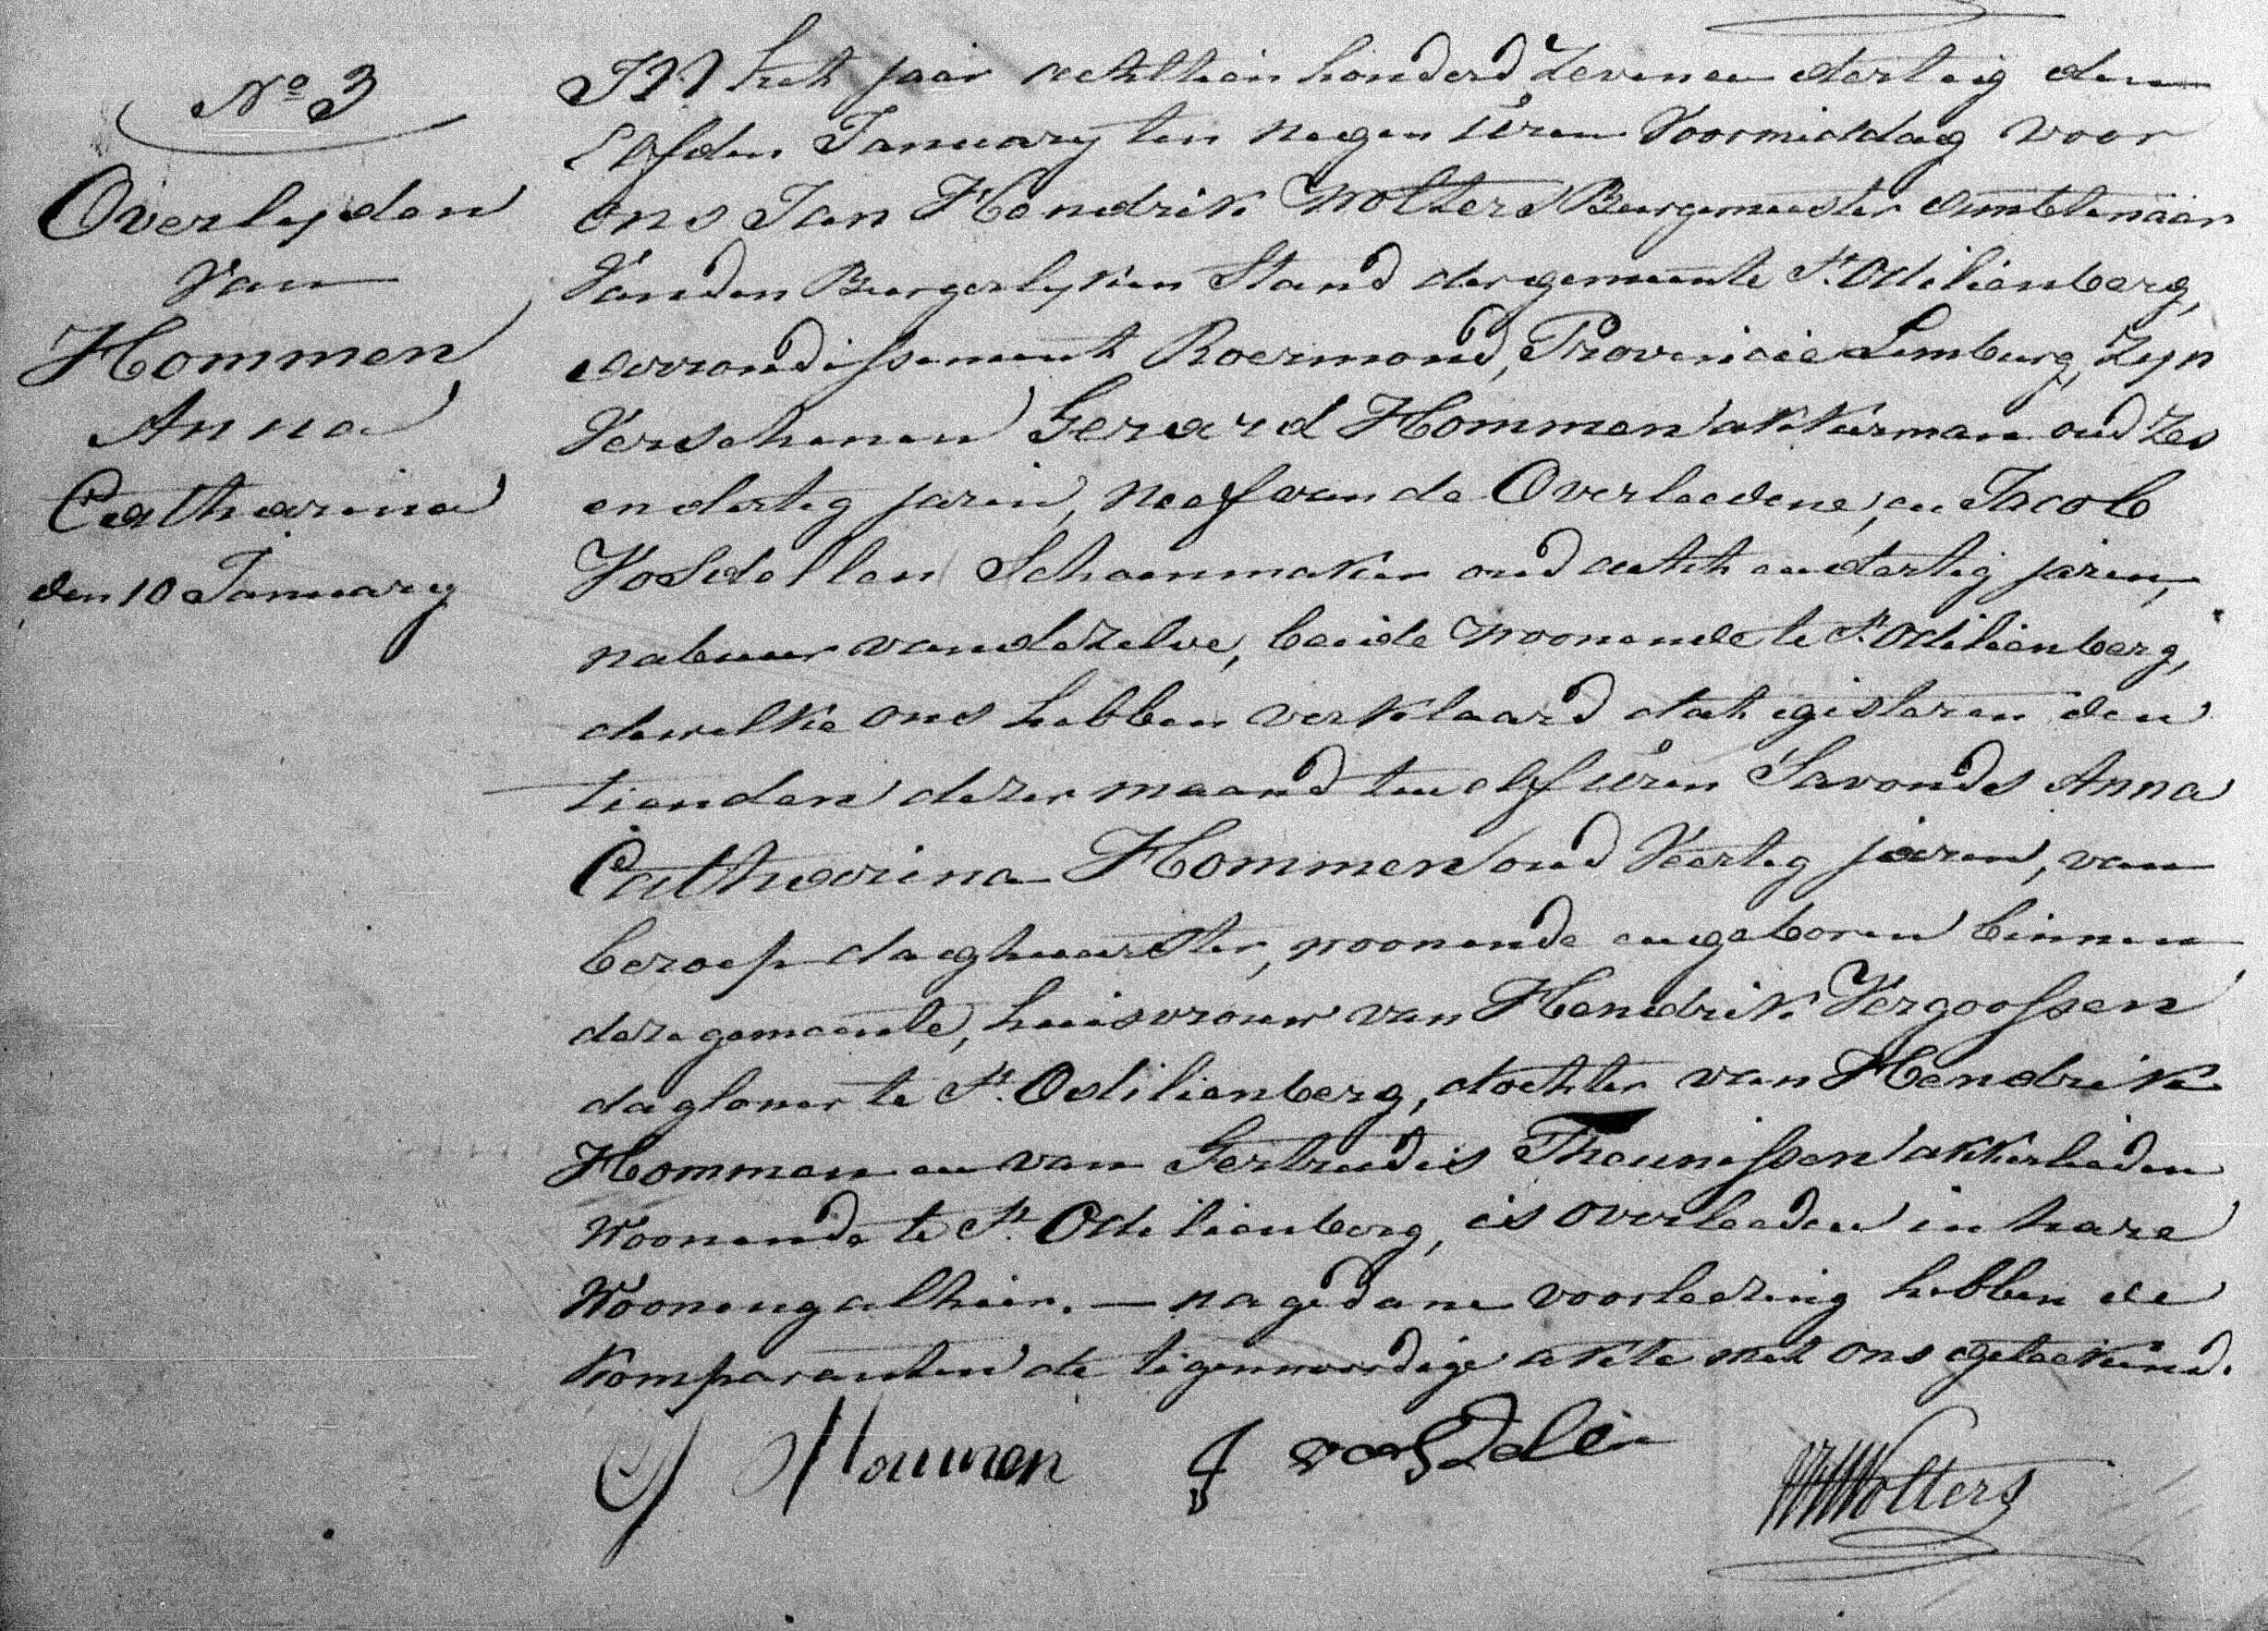 No 3
Overlyden
Van
Hommen
Anna
Catharina
den 10 January
IN het jaar achttien honderd Zeven en dertig den
Elfden January ten negen uren Voormiddag voor
ons Jan Hendrik Wolters Burgemeester Ambtenaar
Vanden Burgerlyken Stand der gemeente St. Odilienberg,
arrondissement Roermond, Provincie Limburg, Zyn
Verschenen Gerard Hommen akkerman oud Zes
en dertig jaren, neef van de Overleedene, en Jacob
Vosdellen Schoenmaker oud acht en dertig jaren,
nabuur van dezelve, beide woonende te St. Odilienberg,
dewelke ons hebben verklaard dat gisteren den
tienden dezer maand ten elf uren Savonds Anna
Catharina Hommen oud Veertig jaren, van
beroep daghuurster, woonende en geboren binnen
deze gemeente, huisvrouw van Hendrik Vergoossen
dagloner te St. Odilienberg, dochter van Hendrik
Hommen en van Gertrudis Theunissen akkerlieden
Woonende te St. Odilienberg, is overleeden in hare
Wooning alhier. — na gedane voorleezing hebben de
Komparanten de tegenwoordige akte met ons geteekend.
G Hommen J vosdelen JHWolters